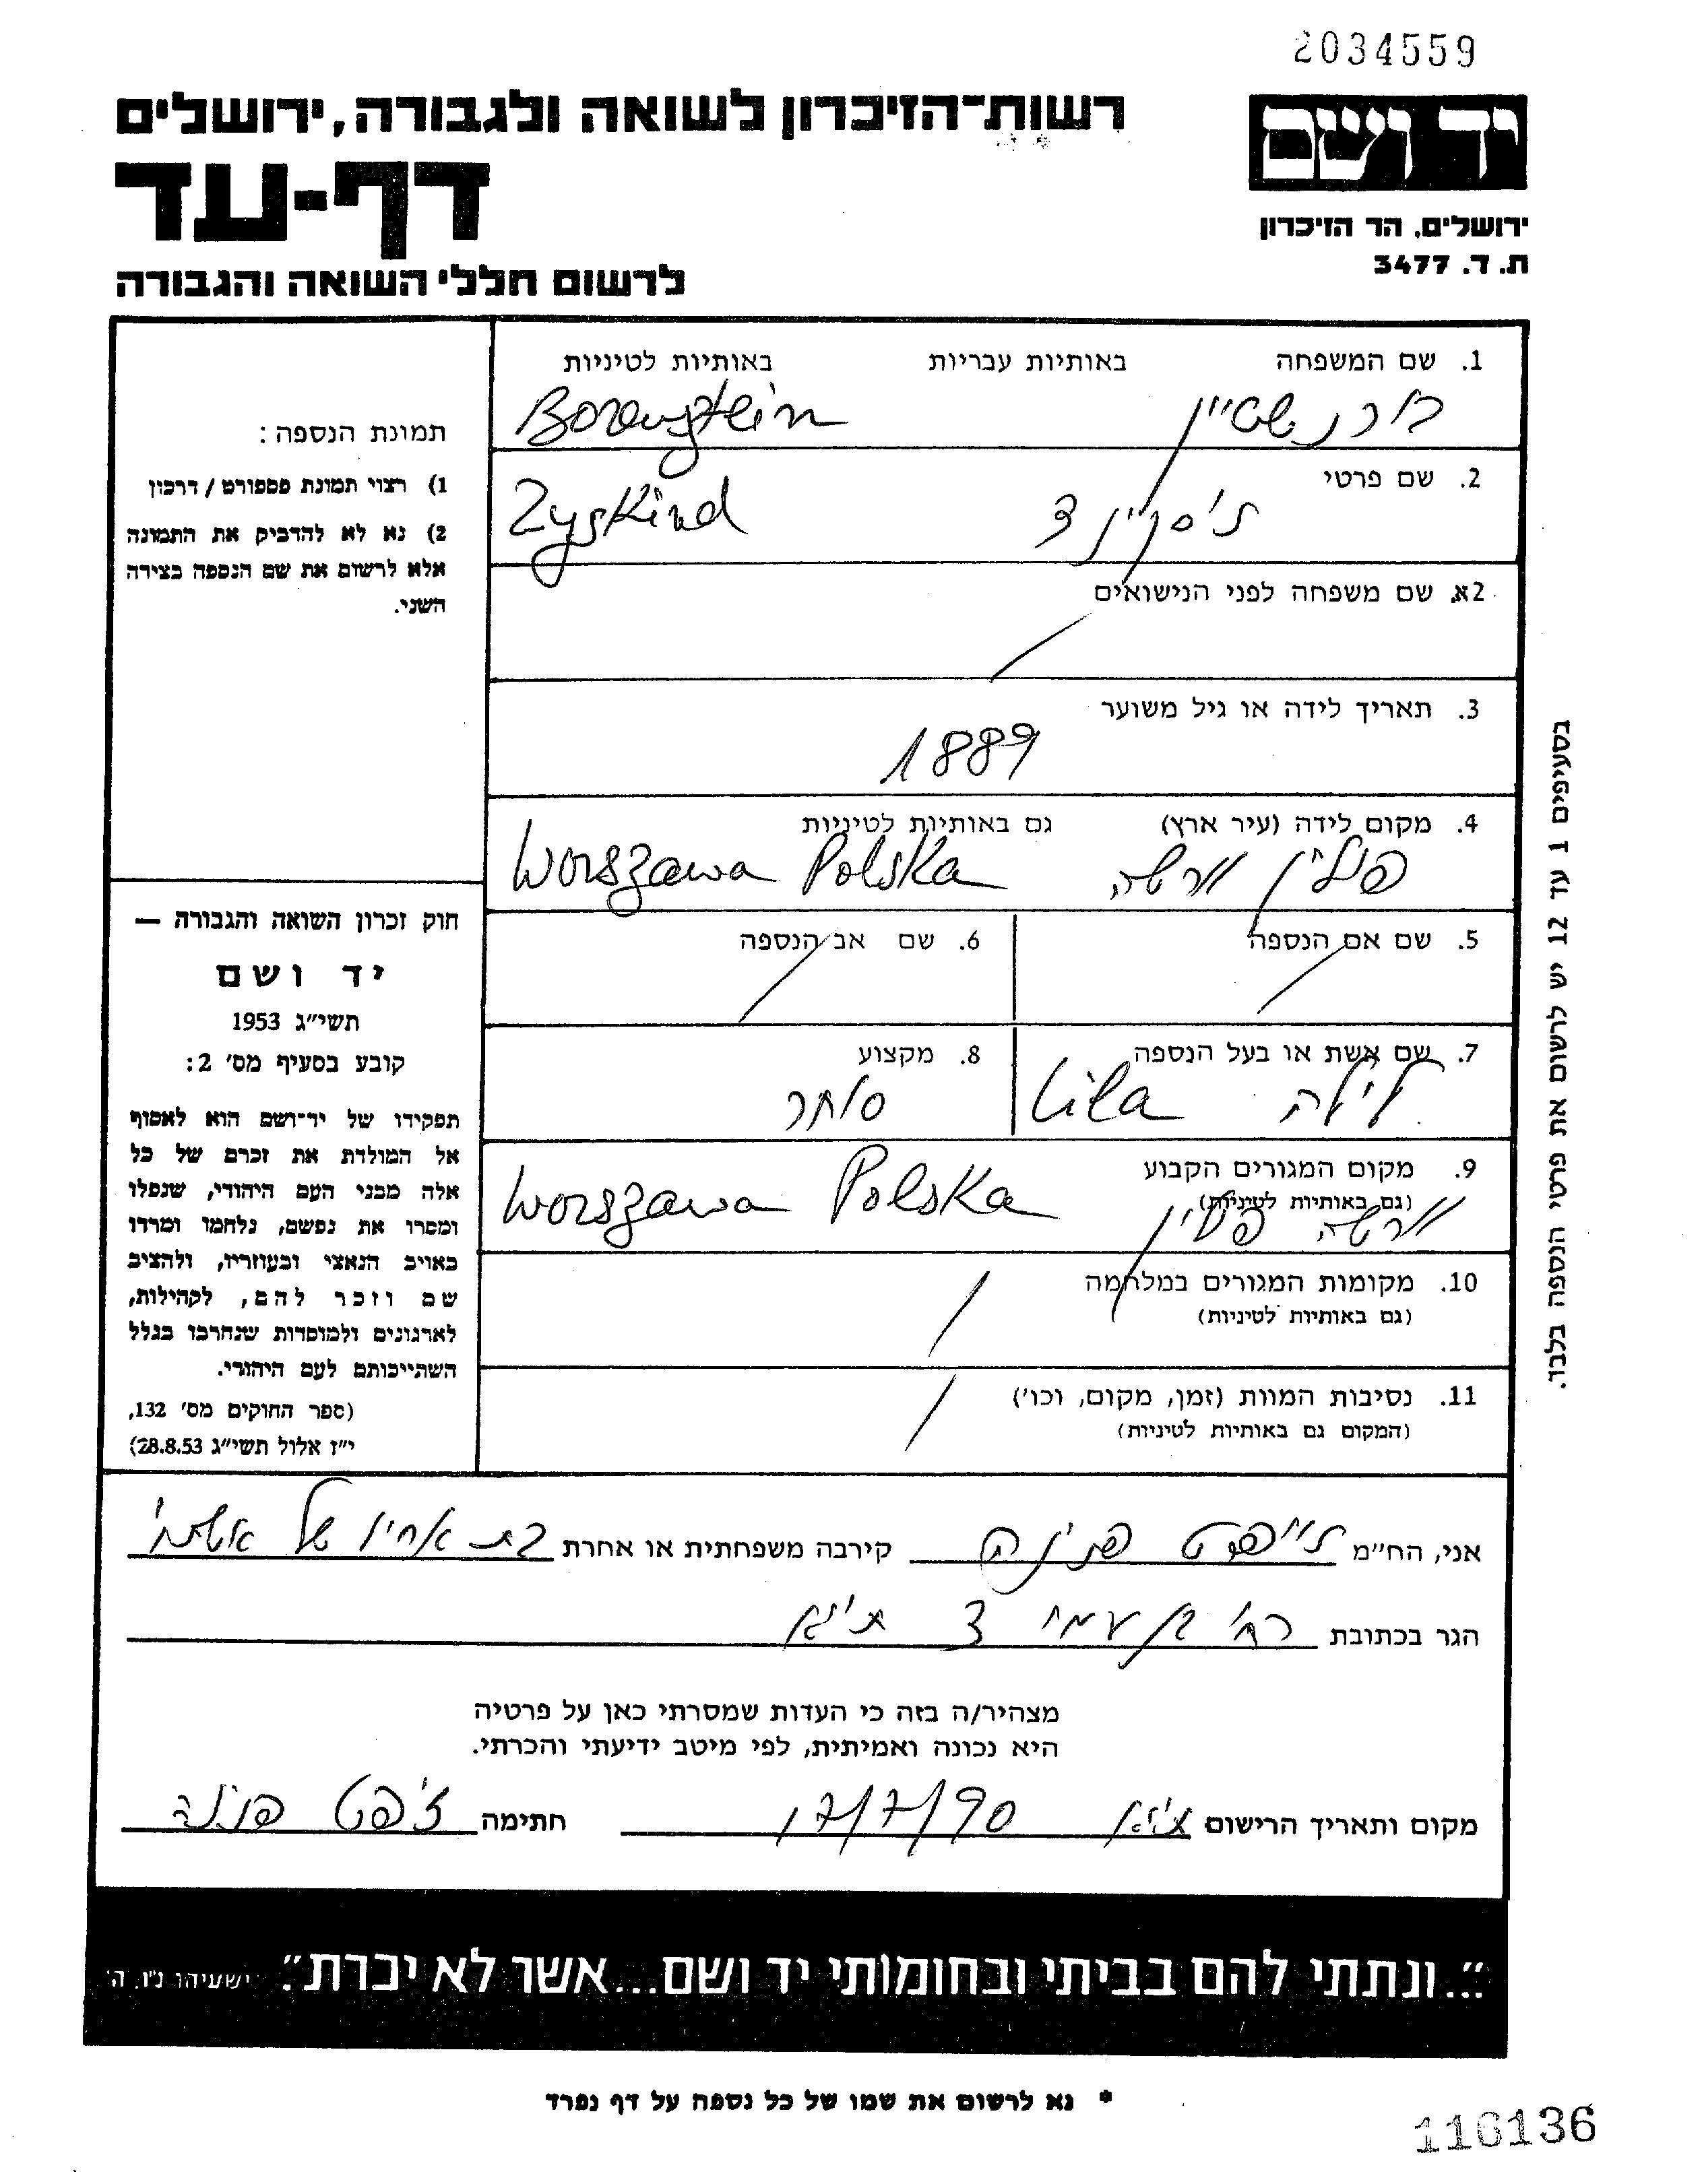 2034559
רשות-הזיכרון לשואה ולגבורה, ירושלים
יד ושם
דף-עד
ירושלים, הר הזיכרון
ת. ד. 3477
לרשום חללי השואה והגבורה
1. שם המשפחה באותיות עבריות באותיות לטיניות
בורנשטיין Borensztein
2. שם פרטי
זיסקינד Zyskind
2א. שם משפחה לפני הנישואים
3. תאריך לידה או גיל משוער
1889
4. מקום לידה (עיר ארץ) גם באותיות לטיניות
פולין ורשה Worszawa Polska
5. שם אם הנספה 6. שם אב הנספה
7. שם אשת או בעל הנספה 8. מקצוע
לילה Lila סוחר
9. מקום המגורים הקבוע
(גם באותיות לטיניות)
ורשה פולין Worszawa Polska
10. מקומות המגורים במלחמה
(גם באותיות לטיניות)
11. נסיבות המוות (זמן, מקום, וכו')
(המקום גם באותיות לטיניות)
תמונת הנספה:
1) רצוי תמונת פספורט / דרכון
2) נא לא להדביק את התמונה
אלא לרשום את שם הנספה בצידה
השני.
חוק זכרון השואה והגבורה —
יד ושם
תשי"ג 1953
קובע בסעיף מס' 2:
תפקידו של יד-ושם הוא לאסוף
אל המולדת את זכרם של כל
אלה מבני העם היהודי, שנפלו
ומסרו את נפשם, נלחמו ומרדו
באויב הנאצי ובעוזריו, ולהציב
שם וזכר להם, לקהילות,
לארגונים ולמוסדות שנחרבו בגלל
השתייכותם לעם היהודי.
(ספר החוקים מס' 132,
י"ז אלול תשי"ג 28.8.53)
בסעיפים 1 עד 12 יש לרשום את פרטי הנספה בלבד.
אני, הח"מ זייפט פנינה קירבה משפחתית או אחרת בת אחיו של
הגר בכתובת רח' בן עמי 3 ת"א
מצהיר/ה בזה כי העדות שמסרתי כאן על פרטיה
היא נכונה ואמיתית, לפי מיטב ידיעתי והכרתי.
מקום ותאריך הרישום ת"א 17/7/90 חתימה זיפט פנינה
"...ונתתי להם בביתי ובחומותי יד ושם...אשר לא יכרת". ישעיהו נ"ו, ה'
* נא לרשום את שמו של כל נספה על דף נפרד
116136